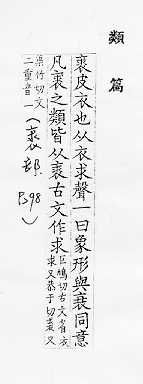 類篇
裘皮衣也从衣求聲一曰象形與衰同意
凡裘之類皆从裘古文作求巨鳩切古文省衣
求又恭于切裘又
渠竹切文
二重音一
（裘部
P.98）